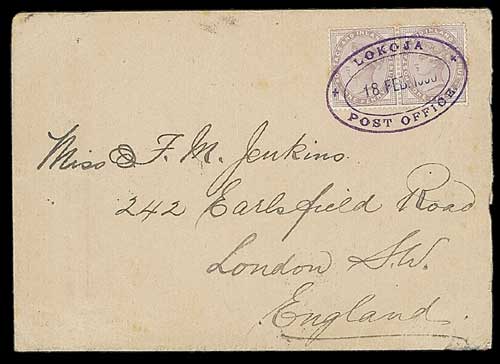 LOKOJA
18 FEB. 1900
POST OFFICE
Miss F. M. Jenkins.
242 Earlsfield Road
London S.W.
England.